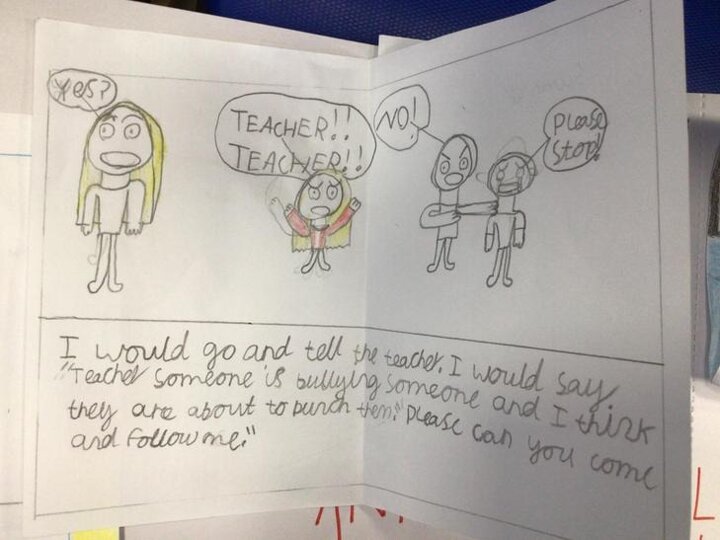 Yes?
TEACHER!!
TEACHER!!
NO!
Please
Stop!
I would go and tell the teacher. I would say
"Teacher someone is bullying someone and I think
they are about to punch them." Please can you come
and follow me."